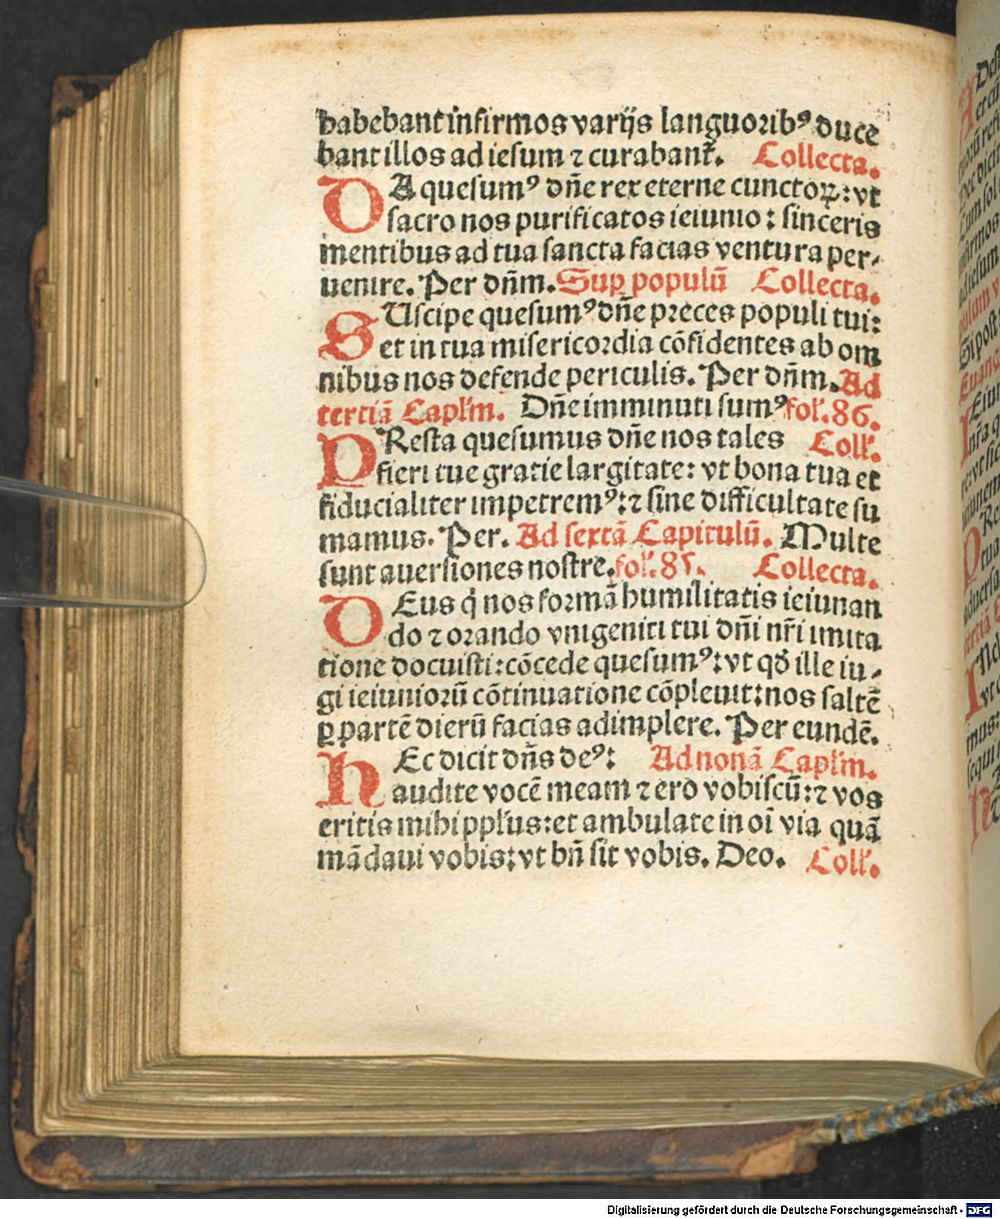 habebant infirmos varijs languoribꝰ duce
bant illos ad iesum ⁊ curabanẗ. Collecta.
DA quesumꝰ dñe rex eterne cunctoꝝ: vt
sacro nos purificatos ieiunio: sinceris
mentibus ad tua sancta facias ventura per-
uenire. Per dñm. Suꝑ populū Collecta.
SUscipe quesumꝰ dñe preces populi tui:
et in tua misericordia cōfidentes ab om
nibus nos defende periculis. Per dñm. Ad
tertiā Caplm. Dñe imminuti sumꝰ fol. 86.
PResta quesumus dñe nos tales Coll.
fieri tue gratie largitate: vt bona tua et
fiducialiter impetremꝰ: ⁊ sine difficultate su
mamus. Per. Ad sextā Capitulū. Multe
sunt auersiones nostre. fol. 85. Collecta.
DEus q̇ nos formā humilitatis ieiunan
do ⁊ orando vnigeniti tui dñi nr̃i imita
tione docuisti: cōcede quesumꝰ: vt qđ ille iu-
gi ieiuniorū cōtinuatione cōpleuit: nos saltē
ꝑ partē dierū facias adimplere. Per eundē.
HEc dicit dñs deꝰ: Ad nonā Caplm.
audite vocē meam ⁊ ero vobiscū: ⁊ vos
eritis mihi ppľus: et ambulate in oī via quā
mādaui vobis: vt bñ sit vobis. Deo. Coll.
Digitalisierung gefördert durch die Deutsche Forschungsgemeinschaft - DFG